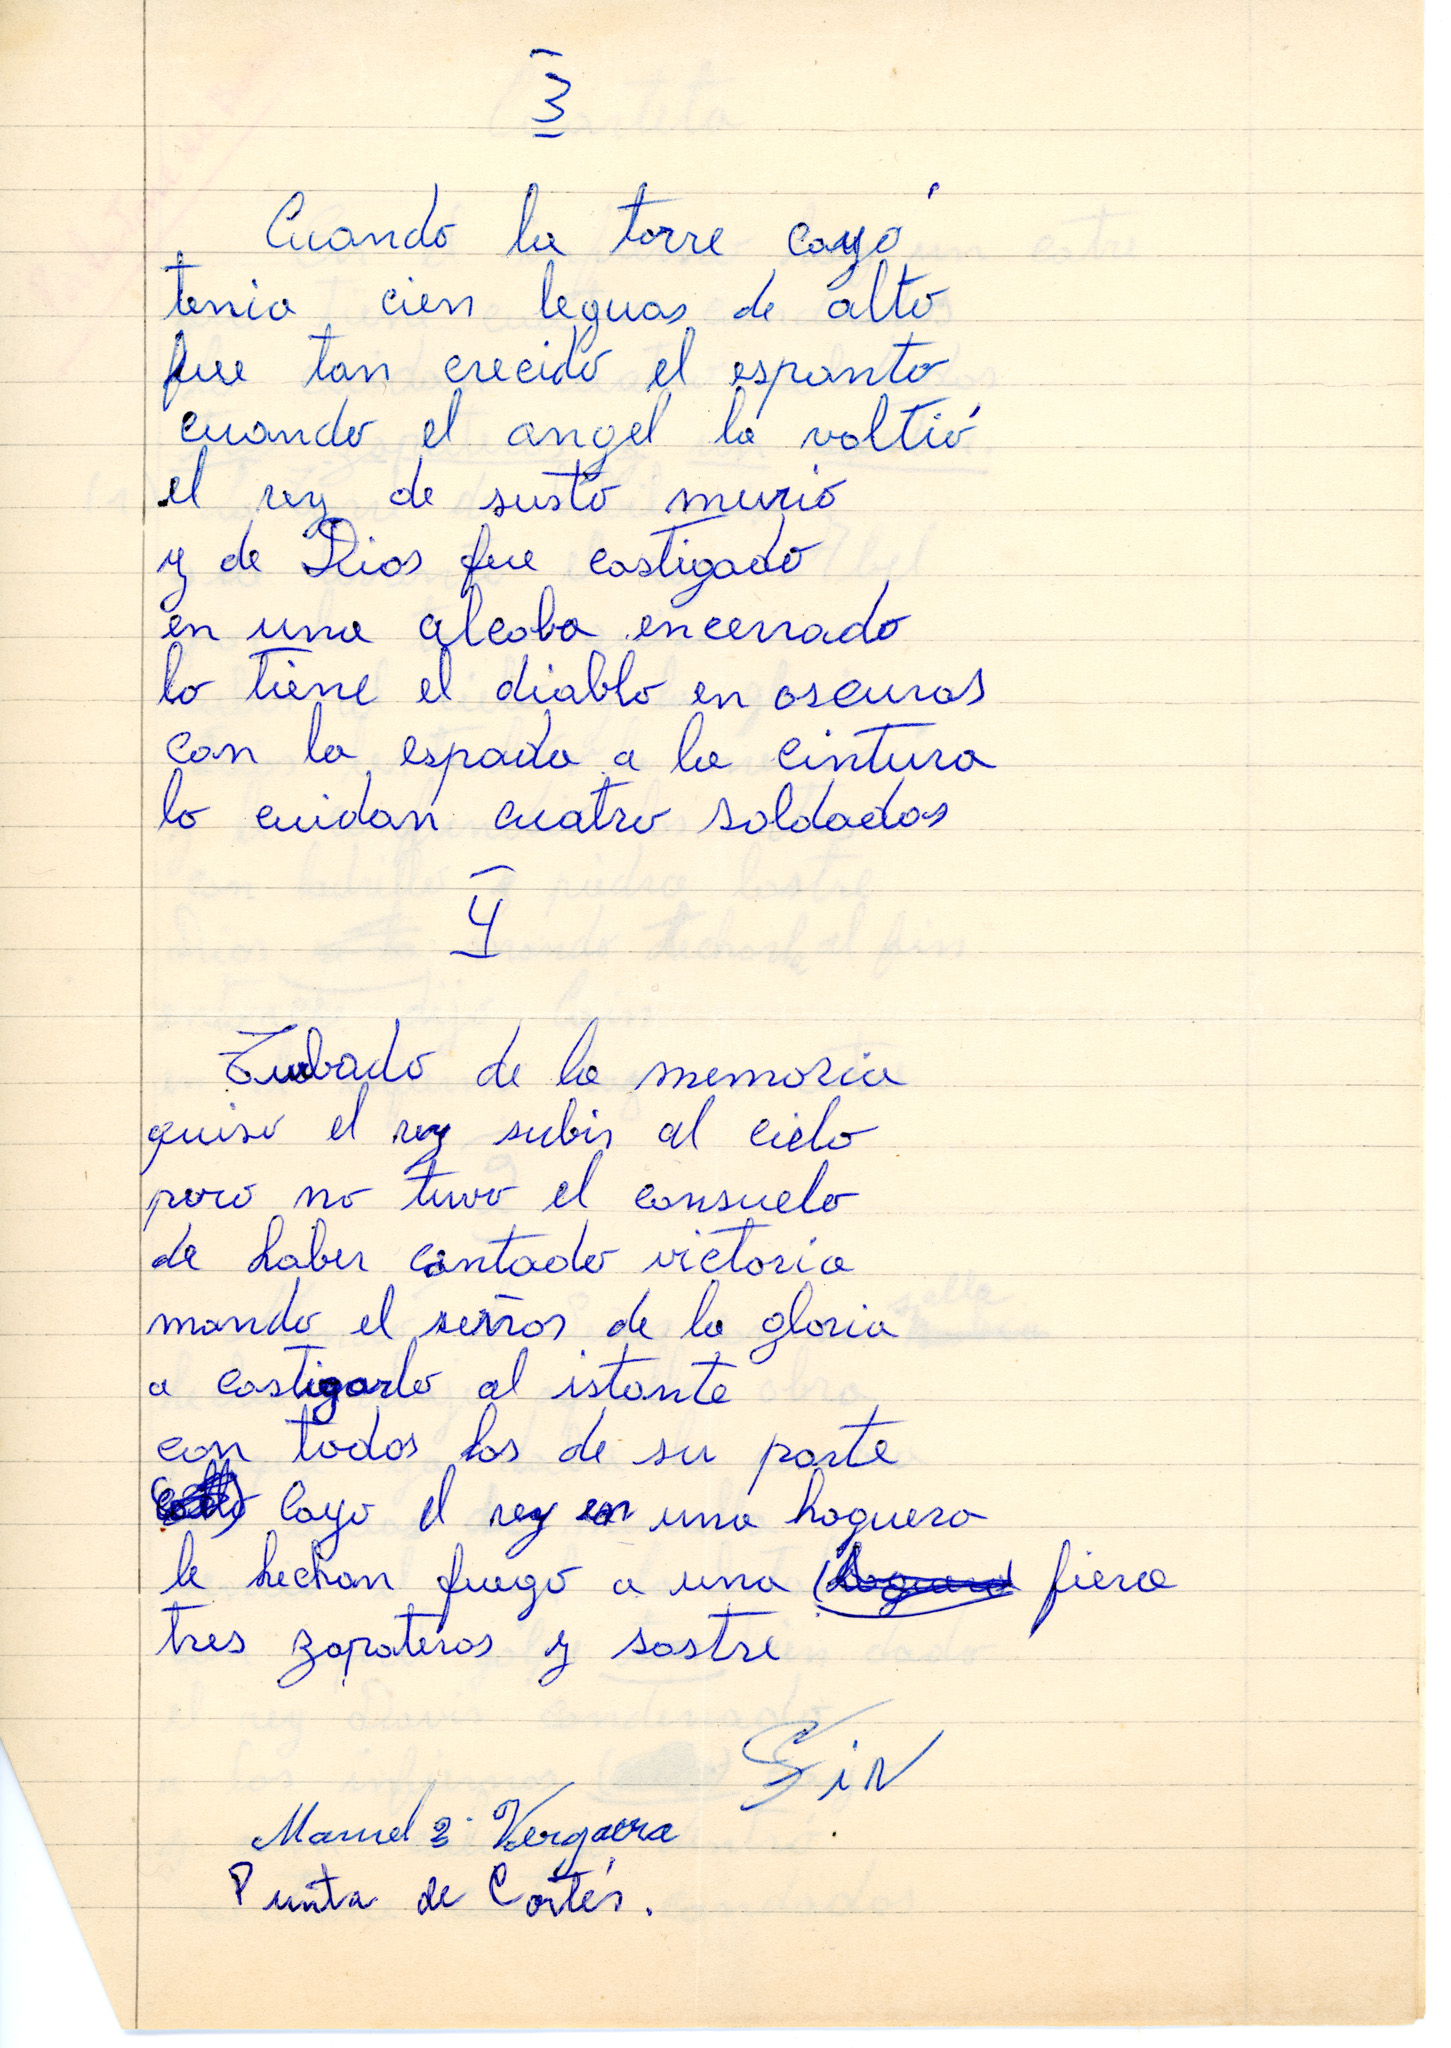 3
Cuando la torre cayó
tenia cien leguas de alto
fue tan crecido el espanto
cuando el angel la voltió
el rey de susto murio
y de Dios fue castigado
en una alcoba encerrado
lo tiene el diablo en oscuras
con la espada a la cintura
lo cuidan cuatro soldados
4
Tubado de la memoria
quiso el rey subir al cielo
pero no tuvo el consuelo
de haber cantado victoria
mando el señor de la gloria
a castigarlo al istante
con todos los de su parte
cayo el rey en una hoguera
le hechan fuego a una fiera
tres zapateros y sastre
Fin
Manuel 2º Vergara
Punta de Cortés.